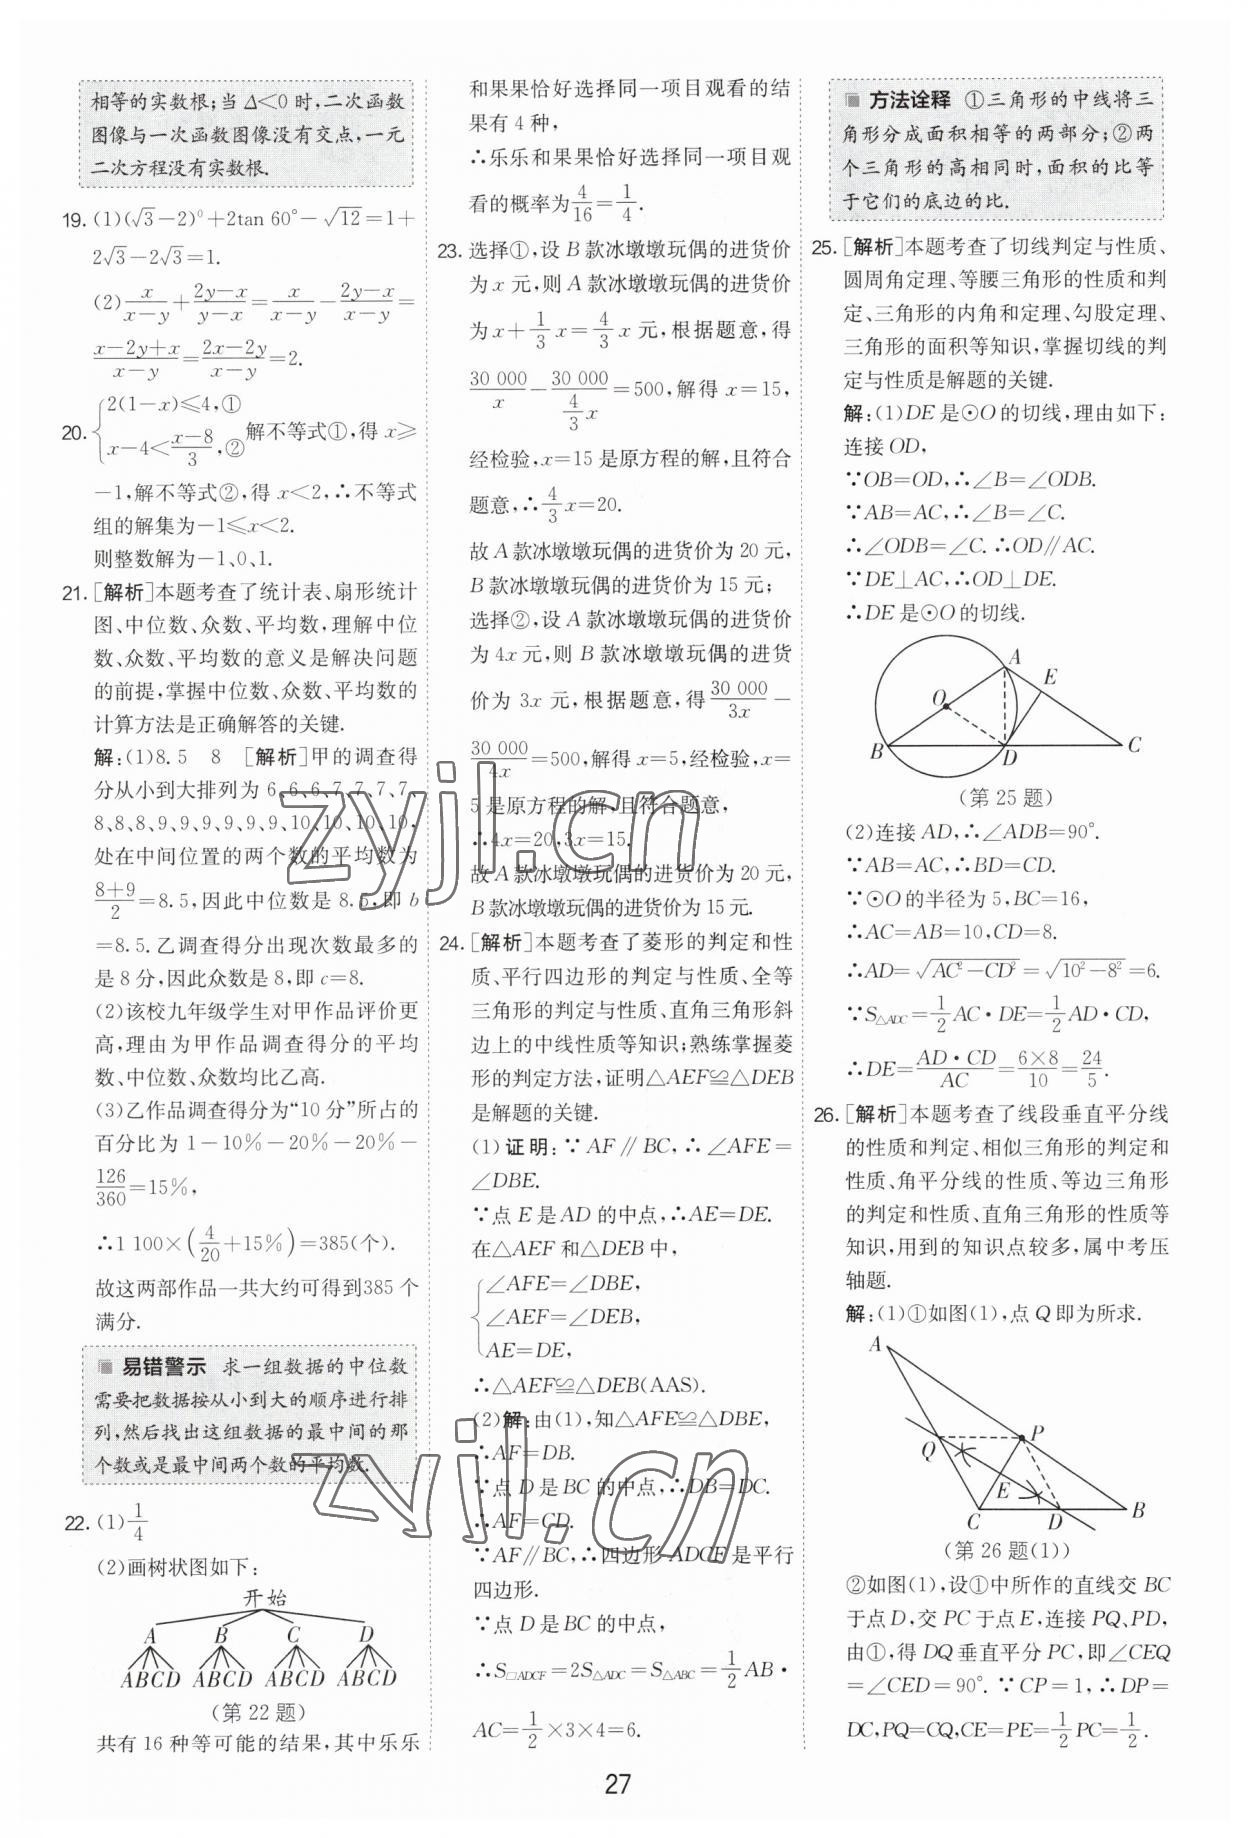 相等的实数根;当 Δ<0 时,二次函数
图像与一次函数图像没有交点,一元
二次方程没有实数根.
19. (1)(√3-2)⁰+2tan 60°-√12=1+
2√3-2√3=1.
(2) x/(x-y) + (2y-x)/(y-x) = x/(x-y) - (2y-x)/(x-y) =
(x-2y+x)/(x-y) = (2x-2y)/(x-y) =2.
20. { 2(1-x)≤4,①
x-4<(x-8)/3,② 解不等式①,得 x≥
-1,解不等式②,得 x<2,∴不等式
组的解集为-1≤x<2.
则整数解为-1、0、1.
21. [解析]本题考查了统计表、扇形统计
图、中位数、众数、平均数,理解中位
数、众数、平均数的意义是解决问题
的前提,掌握中位数、众数、平均数的
计算方法是正确解答的关键.
解:(1)8.5 8 [解析]甲的调查得
分从小到大排列为 6、6、6、7、7、7、7、
8、8、8、9、9、9、9、9、9、10、10、10、10,
处在中间位置的两个数的平均数为
(8+9)/2=8.5,因此中位数是 8.5,即 b
=8.5.乙调查得分出现次数最多的
是 8 分,因此众数是 8,即 c=8.
(2)该校九年级学生对甲作品评价更
高,理由为甲作品调查得分的平均
数、中位数、众数均比乙高.
(3)乙作品调查得分为“10 分”所占的
百分比为 1-10%-20%-20%-
126/360=15%,
∴1 100×(4/20+15%)=385(个).
故这两部作品一共大约可得到385 个
满分.
易错警示 求一组数据的中位数
需要把数据按从小到大的顺序进行排
列,然后找出这组数据的最中间的那
个数或是最中间两个数的平均数.
22. (1)1/4
(2)画树状图如下:
开始
A B C D
ABCD ABCD ABCD ABCD
(第 22 题)
共有 16 种等可能的结果,其中乐乐
和果果恰好选择同一项目观看的结
果有 4 种,
∴乐乐和果果恰好选择同一项目观
看的概率为4/16=1/4.
23. 选择①,设 B 款冰墩墩玩偶的进货价
为 x 元,则 A 款冰墩墩玩偶的进货价
为 x+1/3 x=4/3 x 元,根据题意,得
30 000/x - 30 000/(4/3 x) =500,解得 x=15,
经检验,x=15 是原方程的解,且符合
题意,∴4/3 x=20.
故 A 款冰墩墩玩偶的进货价为 20 元,
B 款冰墩墩玩偶的进货价为 15 元;
选择②,设 A 款冰墩墩玩偶的进货价
为 4x 元,则 B 款冰墩墩玩偶的进货
价为 3x 元,根据题意,得30 000/3x -
30 000/4x =500,解得 x=5,经检验,x=
5 是原方程的解,且符合题意,
∴4x=20,3x=15.
故 A 款冰墩墩玩偶的进货价为 20 元,
B 款冰墩墩玩偶的进货价为 15 元.
24. [解析]本题考查了菱形的判定和性
质、平行四边形的判定与性质、全等
三角形的判定与性质、直角三角形斜
边上的中线性质等知识;熟练掌握菱
形的判定方法,证明△AEF≌△DEB
是解题的关键.
(1)证明:∵AF∥BC,∴∠AFE=
∠DBE.
∵点 E 是 AD 的中点,∴AE=DE.
在△AEF 和△DEB 中,
{ ∠AFE=∠DBE,
∠AEF=∠DEB,
AE=DE,
∴△AEF≌△DEB(AAS).
(2)解:由(1),知△AFE≌△DBE,
∴AF=DB.
∵点 D 是 BC 的中点,∴DB=DC.
∴AF=CD.
∵AF∥BC,∴四边形 ADCF 是平行
四边形.
∵点 D 是 BC 的中点,
∴S□ADCF=2S△ADC=S△ABC=1/2 AB·
AC=1/2×3×4=6.
方法诠释 ①三角形的中线将三
角形分成面积相等的两部分;②两
个三角形的高相同时,面积的比等
于它们的底边的比.
25. [解析]本题考查了切线判定与性质、
圆周角定理、等腰三角形的性质和判
定、三角形的内角和定理、勾股定理、
三角形的面积等知识,掌握切线的判
定与性质是解题的关键.
解:(1)DE 是⊙O 的切线,理由如下:
连接 OD,
∵OB=OD,∴∠B=∠ODB.
∵AB=AC,∴∠B=∠C.
∴∠ODB=∠C. ∴OD∥AC.
∵DE⊥AC,∴OD⊥DE.
∴DE 是⊙O 的切线.
A
E
O
B D C
(第 25 题)
(2)连接 AD,∴∠ADB=90°.
∵AB=AC,∴BD=CD.
∵⊙O 的半径为 5,BC=16,
∴AC=AB=10,CD=8.
∴AD=√(AC²-CD²)=√(10²-8²)=6.
∵S△ADC=1/2 AC·DE=1/2 AD·CD,
∴DE=(AD·CD)/AC=(6×8)/10=24/5.
26. [解析]本题考查了线段垂直平分线
的性质和判定、相似三角形的判定和
性质、角平分线的性质、等边三角形
的判定和性质、直角三角形的性质等
知识,用到的知识点较多,属中考压
轴题.
解:(1)①如图(1),点 Q 即为所求.
A
Q P
E
C D B
(第 26 题(1))
②如图(1),设①中所作的直线交 BC
于点 D,交 PC 于点 E,连接 PQ、PD,
由①,得 DQ 垂直平分 PC,即∠CEQ
=∠CED=90°. ∵CP=1,∴DP=
DC,PQ=CQ,CE=PE=1/2 PC=1/2.
27
zyjl.cn
zyjl.cn